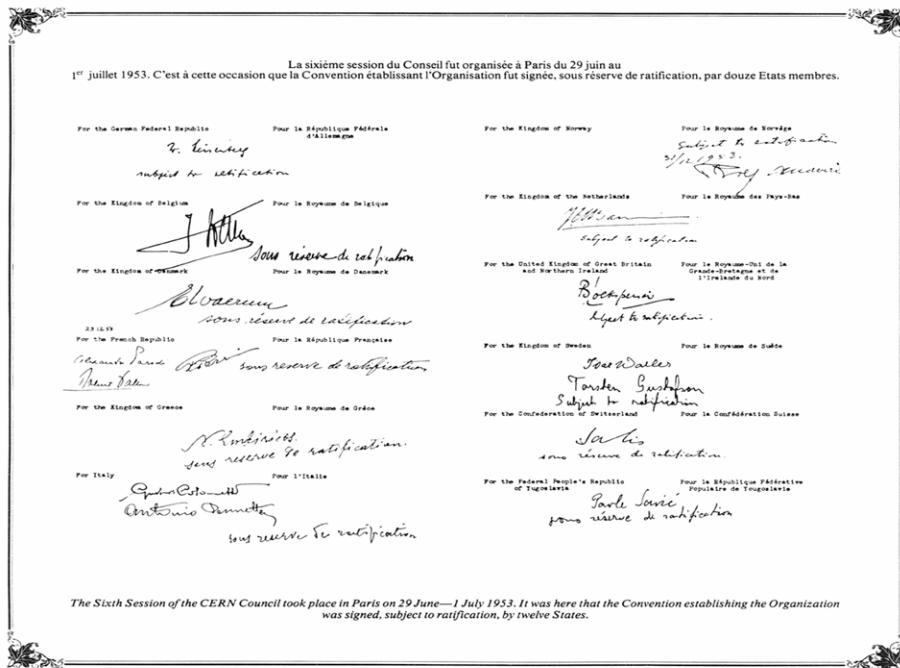 La sixième session du Conseil fut organisée à Paris du 29 juin au
1er juillet 1953. C'est à cette occasion que la Convention établissant l'Organisation fut signée, sous réserve de ratification, par douze Etats membres.
For the German Federal Republic
Pour la République Fédérale
d'Allemagne
subject to ratification
For the Kingdom of Belgium
Pour le Royaume de Belgique
sous réserve de ratification
For the Kingdom of Denmark
Pour le Royaume de Danemark
sous réserve de ratification
23.12.53
For the French Republic
Pour la République Française
sous reserve de ratification
For the Kingdom of Greece
Pour le Royaume de Grèce
sous reserve de ratification.
For Italy
Pour l'Italie
Antonio Pennetta
sous reserve de ratification
For the Kingdom of Norway
Pour le Royaume de Norvège
Subject to ratification
31/12 1953.
For the Kingdom of the Netherlands
Pour le Royaume des Pays-Bas
subject to ratification
For the United Kingdom of Great Britain
and Northern Ireland
Pour le Royaume-Uni de la
Grande-Bretagne et de
l'Irelande du Nord
subject to ratification.
For the Kingdom of Sweden
Pour le Royaume de Suède
Torsten Gustafson
Subject to ratification
For the Confederation of Switzerland
Pour la Confédération Suisse
sous réserve de ratification.
For the Federal People's Republic
of Yugoslavia
Pour la République Fédérative
Populaire de Yougoslavie
Pavle Savić
sous réserve de ratification
The Sixth Session of the CERN Council took place in Paris on 29 June—1 July 1953. It was here that the Convention establishing the Organization
was signed, subject to ratification, by twelve States.